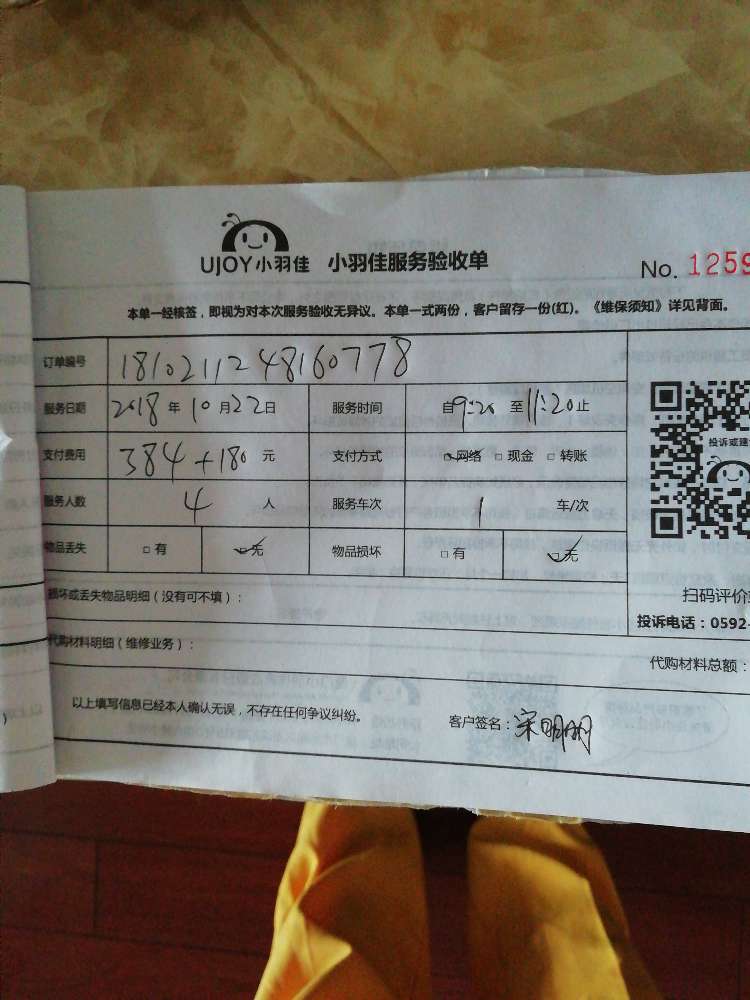 UJOY小羽佳 小羽佳服务验收单
No. 1259
本单一经核签，即视为对本次服务验收无异议。本单一式两份，客户留存一份(红)。《维保须知》详见背面。
订单编号 1810211248160778
服务日期 2018 年 10 月 22 日 服务时间 自 9:20 至 11:20 止
投诉或建
支付费用 384+180 元 支付方式 网络 □ 现金 □ 转账
服务人数 4 人 服务车次 1 车/次
物品丢失 □ 有 无 物品损坏 □ 有 无
损坏或丢失物品明细（没有可不填）：
扫码评价
投诉电话：0592-
代购材料明细（维修业务）：
代购材料总额：
以上填写信息已经本人确认无误，不存在任何争议纠纷。
客户签名：宋明朋